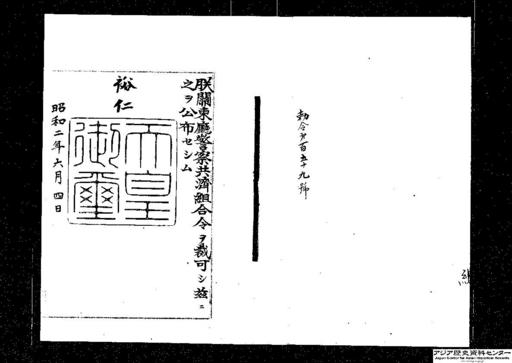 勅令第百五十九號
朕關東廳警察共濟組合令ヲ裁可シ茲ニ
之ヲ公布セシム
裕仁
天皇御璽
昭和二年六月四日
アジア歴史資料センター
Japan Center for Asian Historical Records